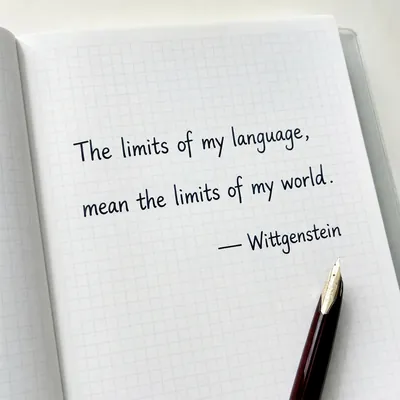 The limits of my language,
mean the limits of my world.
— Wittgenstein